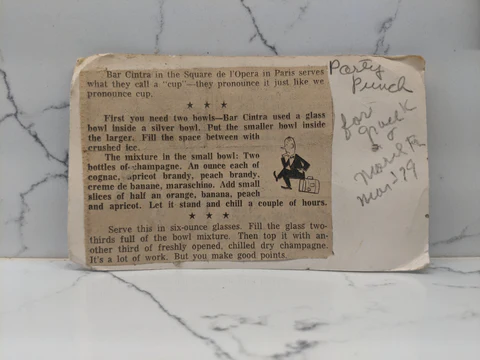 Bar Cintra in the Square de l'Opera in Paris serves
what they call a "cup"—they pronounce it just like we
pronounce cup.
★ ★ ★
First you need two bowls—Bar Cintra used a glass
bowl inside a silver bowl. Put the smaller bowl inside
the larger. Fill the space between with
crushed ice.
The mixture in the small bowl: Two
bottles of champagne. An ounce each of
cognac, apricot brandy, peach brandy,
creme de banane, maraschino. Add small
slices of half an orange, banana, peach
and apricot. Let it stand and chill a couple of hours.
★ ★ ★
Serve this in six-ounce glasses. Fill the glass two-
thirds full of the bowl mixture. Then top it with an-
other third of freshly opened, chilled dry champagne.
It's a lot of work. But you make good points.
Party
Punch
for